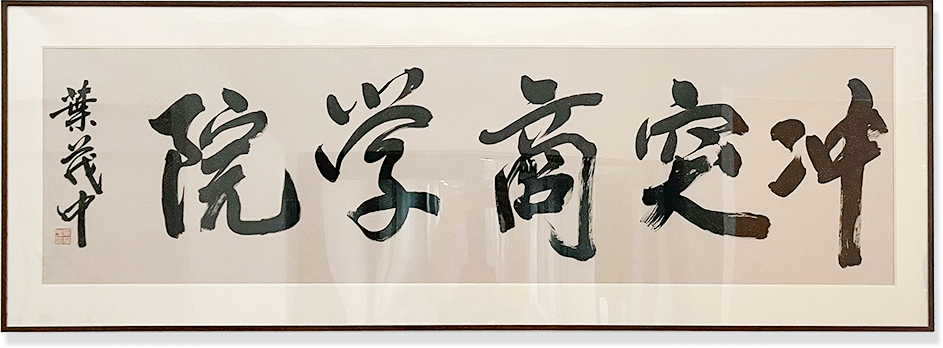 冲突商学院
葉茂中